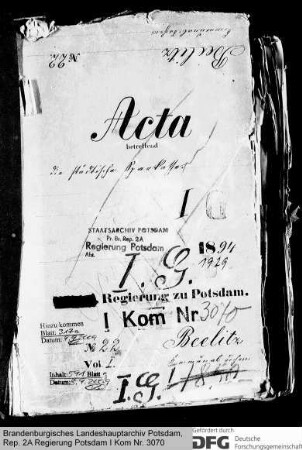 No 22.
Beelitz
Acta
betreffend
die städtische Sparkasse
I
STAATSARCHIV POTSDAM
Pr. Br. Rep. 2A
Regierung Potsdam
Abt.
I. G.
1894
1929
Regierung zu Potsdam.
I Kom Nr. 3070
Hinzu kommen
Blatt:
Datum:
No 22
Vol I.
Beelitz
Inhalt: 591 Blatt
Datum:
I. G.
Brandenburgisches Landeshauptarchiv Potsdam,
Rep. 2A Regierung Potsdam I Kom Nr. 3070
Gefördert durch
DFG Deutsche
Forschungsgemeinschaft